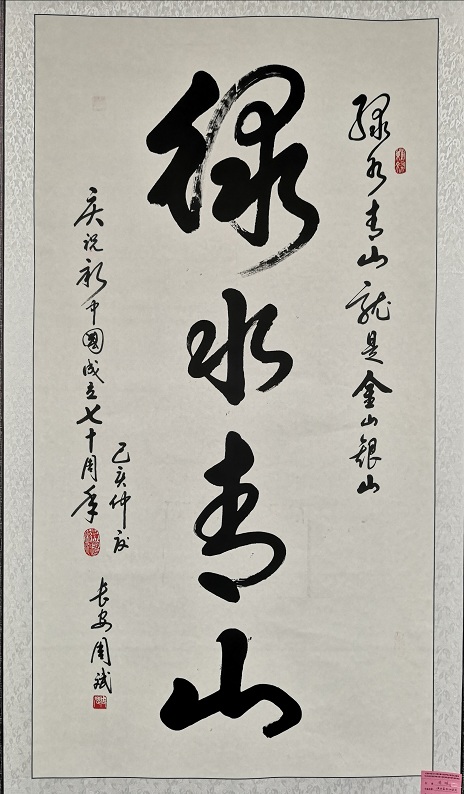 绿水青山就是金山银山
绿水青山
己亥仲夏
庆祝新中国成立七十周年
长安周斌